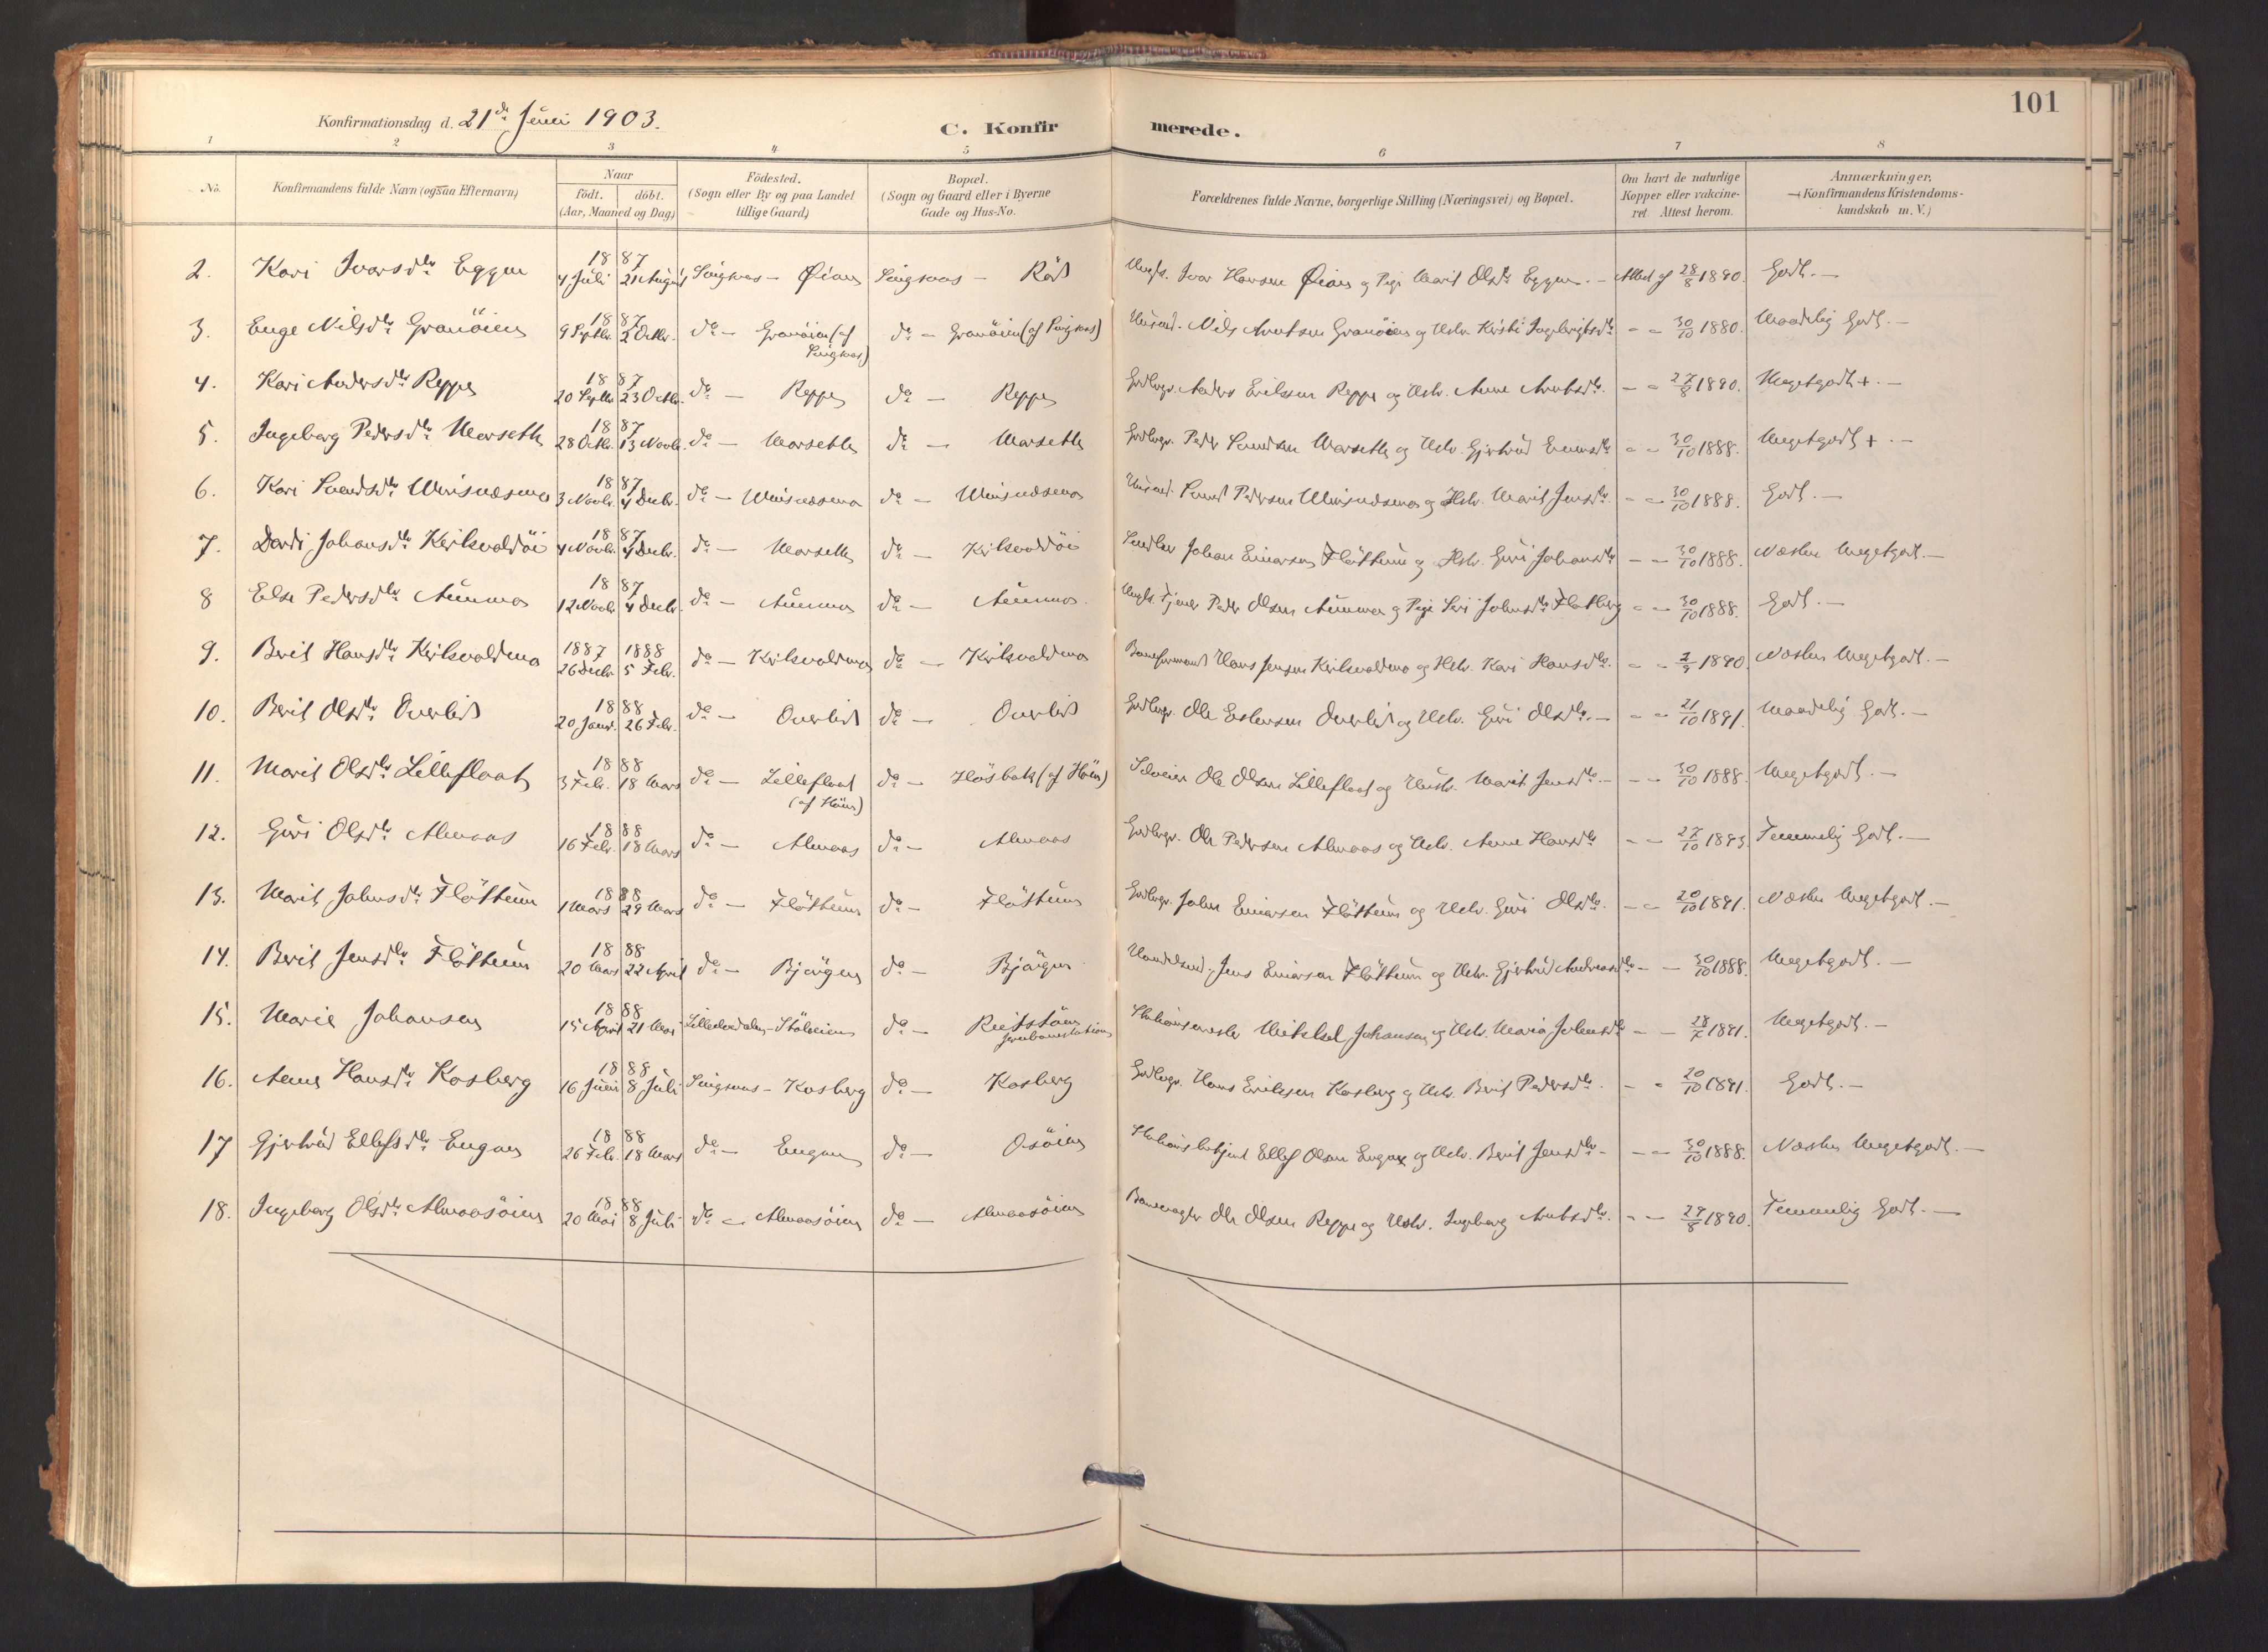 101
Konfirmationsdag d. 21de Juni 1903.
C. Konfirmerede.
1 2 3 4 5 6 7 8
No. Konfirmandens fulde Navn (ogsaa Efternavn) Naar födt. döbt. (Aar, Maaned og Dag) Födested. (Sogn eller By og paa Landet tillige Gaard) Bopæl. (Sogn og Gaard eller i Byerne Gade og Hus-No. Forældrenes fulde Navne, borgerlige Stilling (Næringsvei) og Bopæl. Om havt de naturlige Kopper eller vakcineret. Attest herom. Anmærkninger. (Konfirmandens Kristendomskundskab m. V.)
2. Kari Ivarsdtr Eggen 1887 4 Juli 21 August Singsaas - Øien Singsaas - Röd Ungk. Ivar Hansen Øien og Pige Marit Olsdtr Eggen. - Attest af 28/8 1890. Godt. -
3. Enge Nilsdtr Granöien 1887 9 Septbr. 2 Octbr. do - Granöien (af Singsaas) do - Granöien (af Singsaas) Nils Arntsen Granöien og Hstr. Kirsti Ingebrigtsdtr - - 30/10 1880. Maadelig Godt. -
4. Kari Andersdtr Reppe 1887 20 Septbr 23 Octbr. do - Reppe do - Reppe Gdbgr. Anders Eriksen Reppe og Hstr. Anne Arntsdtr. - - 27/8 1890. Megetgodt +. -
5. Ingeborg Pedersdtr Morseth 1887 28 Octbr. 13 Novbr. do - Morseth do - Morseth Gdbgr. Peder Morseth og Hstr. Gjertrud - - 30/10 1888. Megetgodt +. -
6. Kari Svendsdtr 1887 3 Novbr. 4 Decbr. do - do - Pedersen og Hstr. Marit Jensdtr. - - 30/10 1888. Godt. -
7. Dordi Johansdtr Kjelsvoldöi 1887 4 Novbr. 4 Decbr. do - Morseth do - Kjelsvoldöi Johan Einarsen Flöttum og Hstr. Guri Johansdtr - - 30/10 1888. Næsten Megetgodt. -
8 Else Pedersdtr Aunmo 1887 12 Novbr. 4 Decbr. do - Aunmo do - Aunmo. Ungk. Tjener Peder Olsen Aunmo og Pige Siri Johnsdtr Flatberg - - 30/10 1888. Godt. -
9. Berit Hansdtr Kjelsvoldmo 1887 26 Decbr. 1888 5 Febr. do - Kjelsvoldmo do - Kjelsvoldmo Baneformand Hans Jensen Kjelsvoldmo og Hstr. Kari Hansdtr. - - 1890. Næsten Megetgodt. -
10. Berit Olsdtr Overlid 1888 20 Janr. 26 Febr. do - Overlid do - Overlid Gdbgr. Ole Estensen Overlid og Hstr. Guri Olsdtr. - - - 21/10 1891. Maadelig Godt. -
11. Marit Olsdtr Lillefloat 1888 3 Febr. 18 Mars do - Lillefloat (af Höin) do - Höisbak (af Höin) Selveier Ole Olsen Lillefloat og Hustr. Marit Jensdtr. - - - 30/10 1888. Megetgodt. -
12. Guri Olsdtr Almaas 1888 16 Febr. 18 Mars do - Almaas do - Almaas Gdbgr. Ole Pedersen Almaas og Hstr. Anne Hansdtr - - 27/10 1893 Temmelig Godt. -
13. Marit Johnsdtr Flöttum 1888 1 Mars 29 Mars do - Flöttum do - Flöttum Gdbgr. John Einarsen Flöttum og Hstr. Guri Olsdtr. - - 20/10 1891. Næsten Megetgodt. -
14. Berit Jensdtr Flöttum 1888 20 Mars 22 April do - Bjørgen do - Bjørgen Handelsmd. Jens Einarsen Flöttum og Hstr. Gjertrud Andreasdtr - - 30/10 1888. Megetgodt. -
15. Marie Johansen 1888 15 April 21 Mai Lilleelvedalen - Stöleien do - Reitstöen Jernbanestation Stationsmester Mikkel Johansen og Hstr. Maria Johnsdtr - - 1891. Megetgodt. -
16. Anne Hansdtr Kosberg 1888 16 Juni 8 Juli Singsaas - Kosberg do - Kosberg Gdbgr. Hans Eriksen Kosberg og Hstr. Berit Pedersdtr. - - 20/10 1891. Godt. -
17 Gjertrud Ellefsdtr Engan 1888 26 Febr. 18 Mars do - Engan do - Osöien Stationsbetjent Ellef Olsen Engan og Hstr. Berit Jensdtr - - - 30/10 1888. Næsten Megetgodt. -
18. Ingeborg Olsdtr Almaasöien 1888 20 Mai 8 Juli do - Almaasöien do - Almaasöien Banevogter Ole Olsen Reppe og Hstr. Ingeborg Arntsdtr. - - 27/8 1890. Temmelig Godt. -